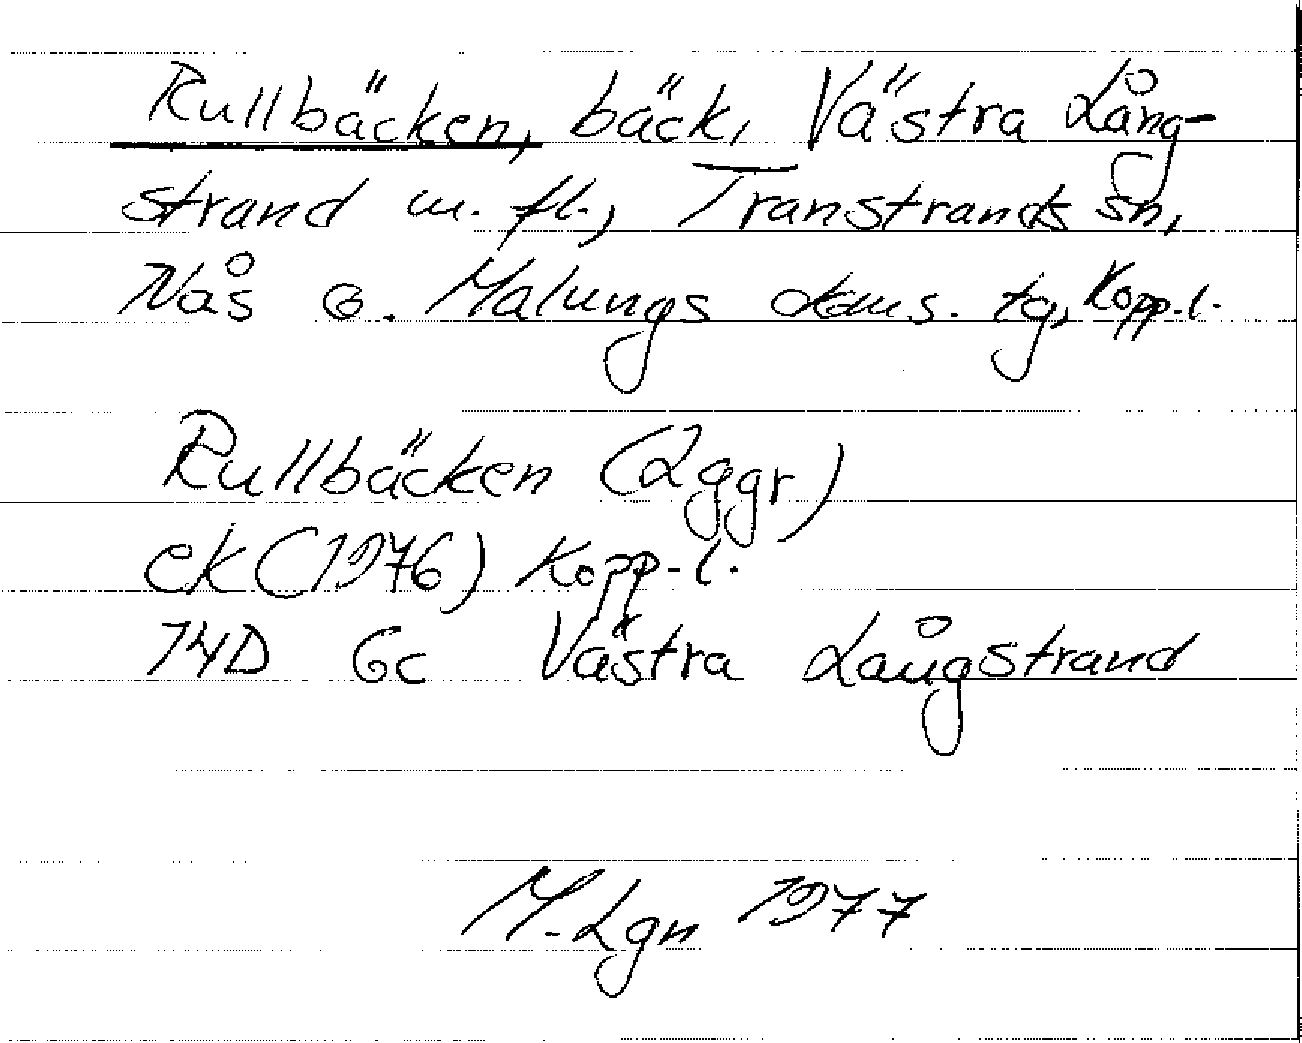 Rullbäcken, bäck, Västra Lång-
strand m. fl., Transtrands sn,
Nås o. Malungs doms. tg, Kopp. l.
Rullbäcken (2ggr)
ek (1976) Kopp. l.
14D 6c Västra Långstrand
M. Lgn 1977